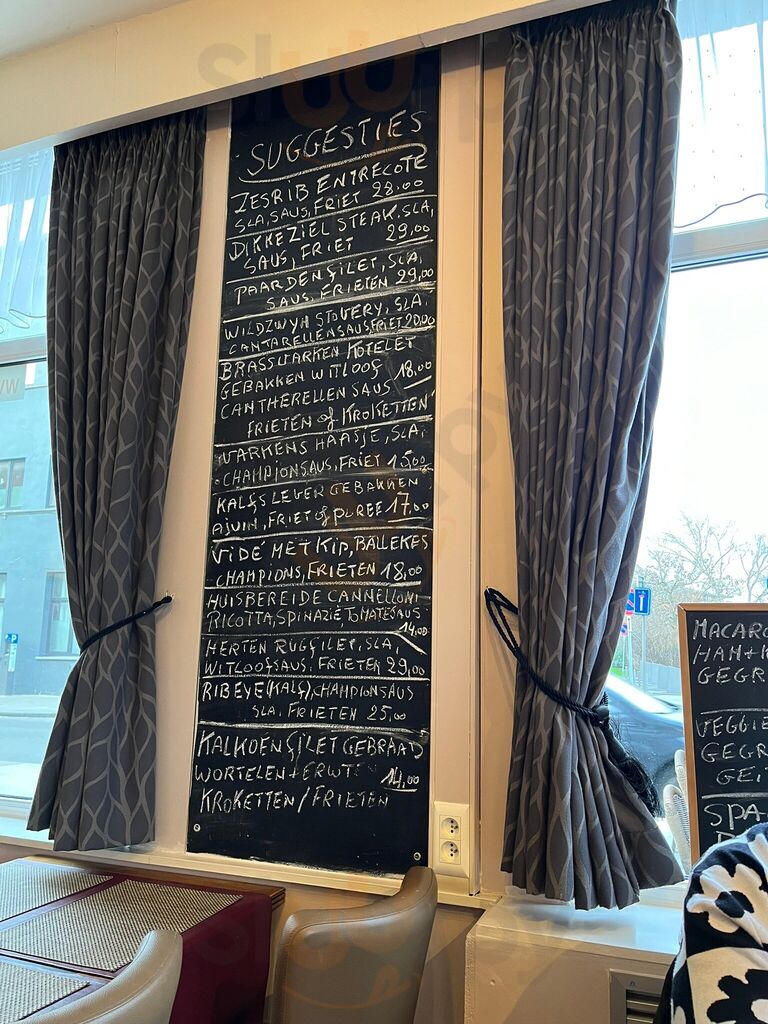 SUGGESTIES
ZESRIB ENTRECOTE
SLA, SAUS, FRIET 28.00
DIKKE ZIEL STEAK, SLA,
SAUS, FRIET 29.00
PAARDENFILET, SLA
SAUS, FRIETEN 29,00
WILDZWYN STOVERY, SLA
CANTARELLENSAUS FRIET 20,00
BRASVARKEN KOTELET
GEBAKKEN WITLOOF 18.00
CANTHERELLEN SAUS
FRIETEN of KROKETTEN
VARKENS HAASJE, SLA,
CHAMPIONSAUS, FRIET 15,00
KALFSLEVER GEBAKKEN
AJUIN, FRIET of PUREE 17,00
VIDÉ MET KIP, BALLEKES
CHAMPIONS, FRIETEN 18,00
HUISBEREIDE CANNELLONI
RICOTTA, SPINAZIE TOMATESAUS
14,00
HERTEN RUGFILET, SLA,
WITLOOFSAUS, FRIETEN 29,00
RIBEYE (KALF), CHAMPIONSAUS
SLA, FRIETEN 25,00
KALKOENFILET GEBRAAD
WORTELEN + ERWTEN 14,00
KROKETTEN / FRIETEN
MACARO
HAM+K
GEGR
VEGGIE
GEGR
GEIT
SPA